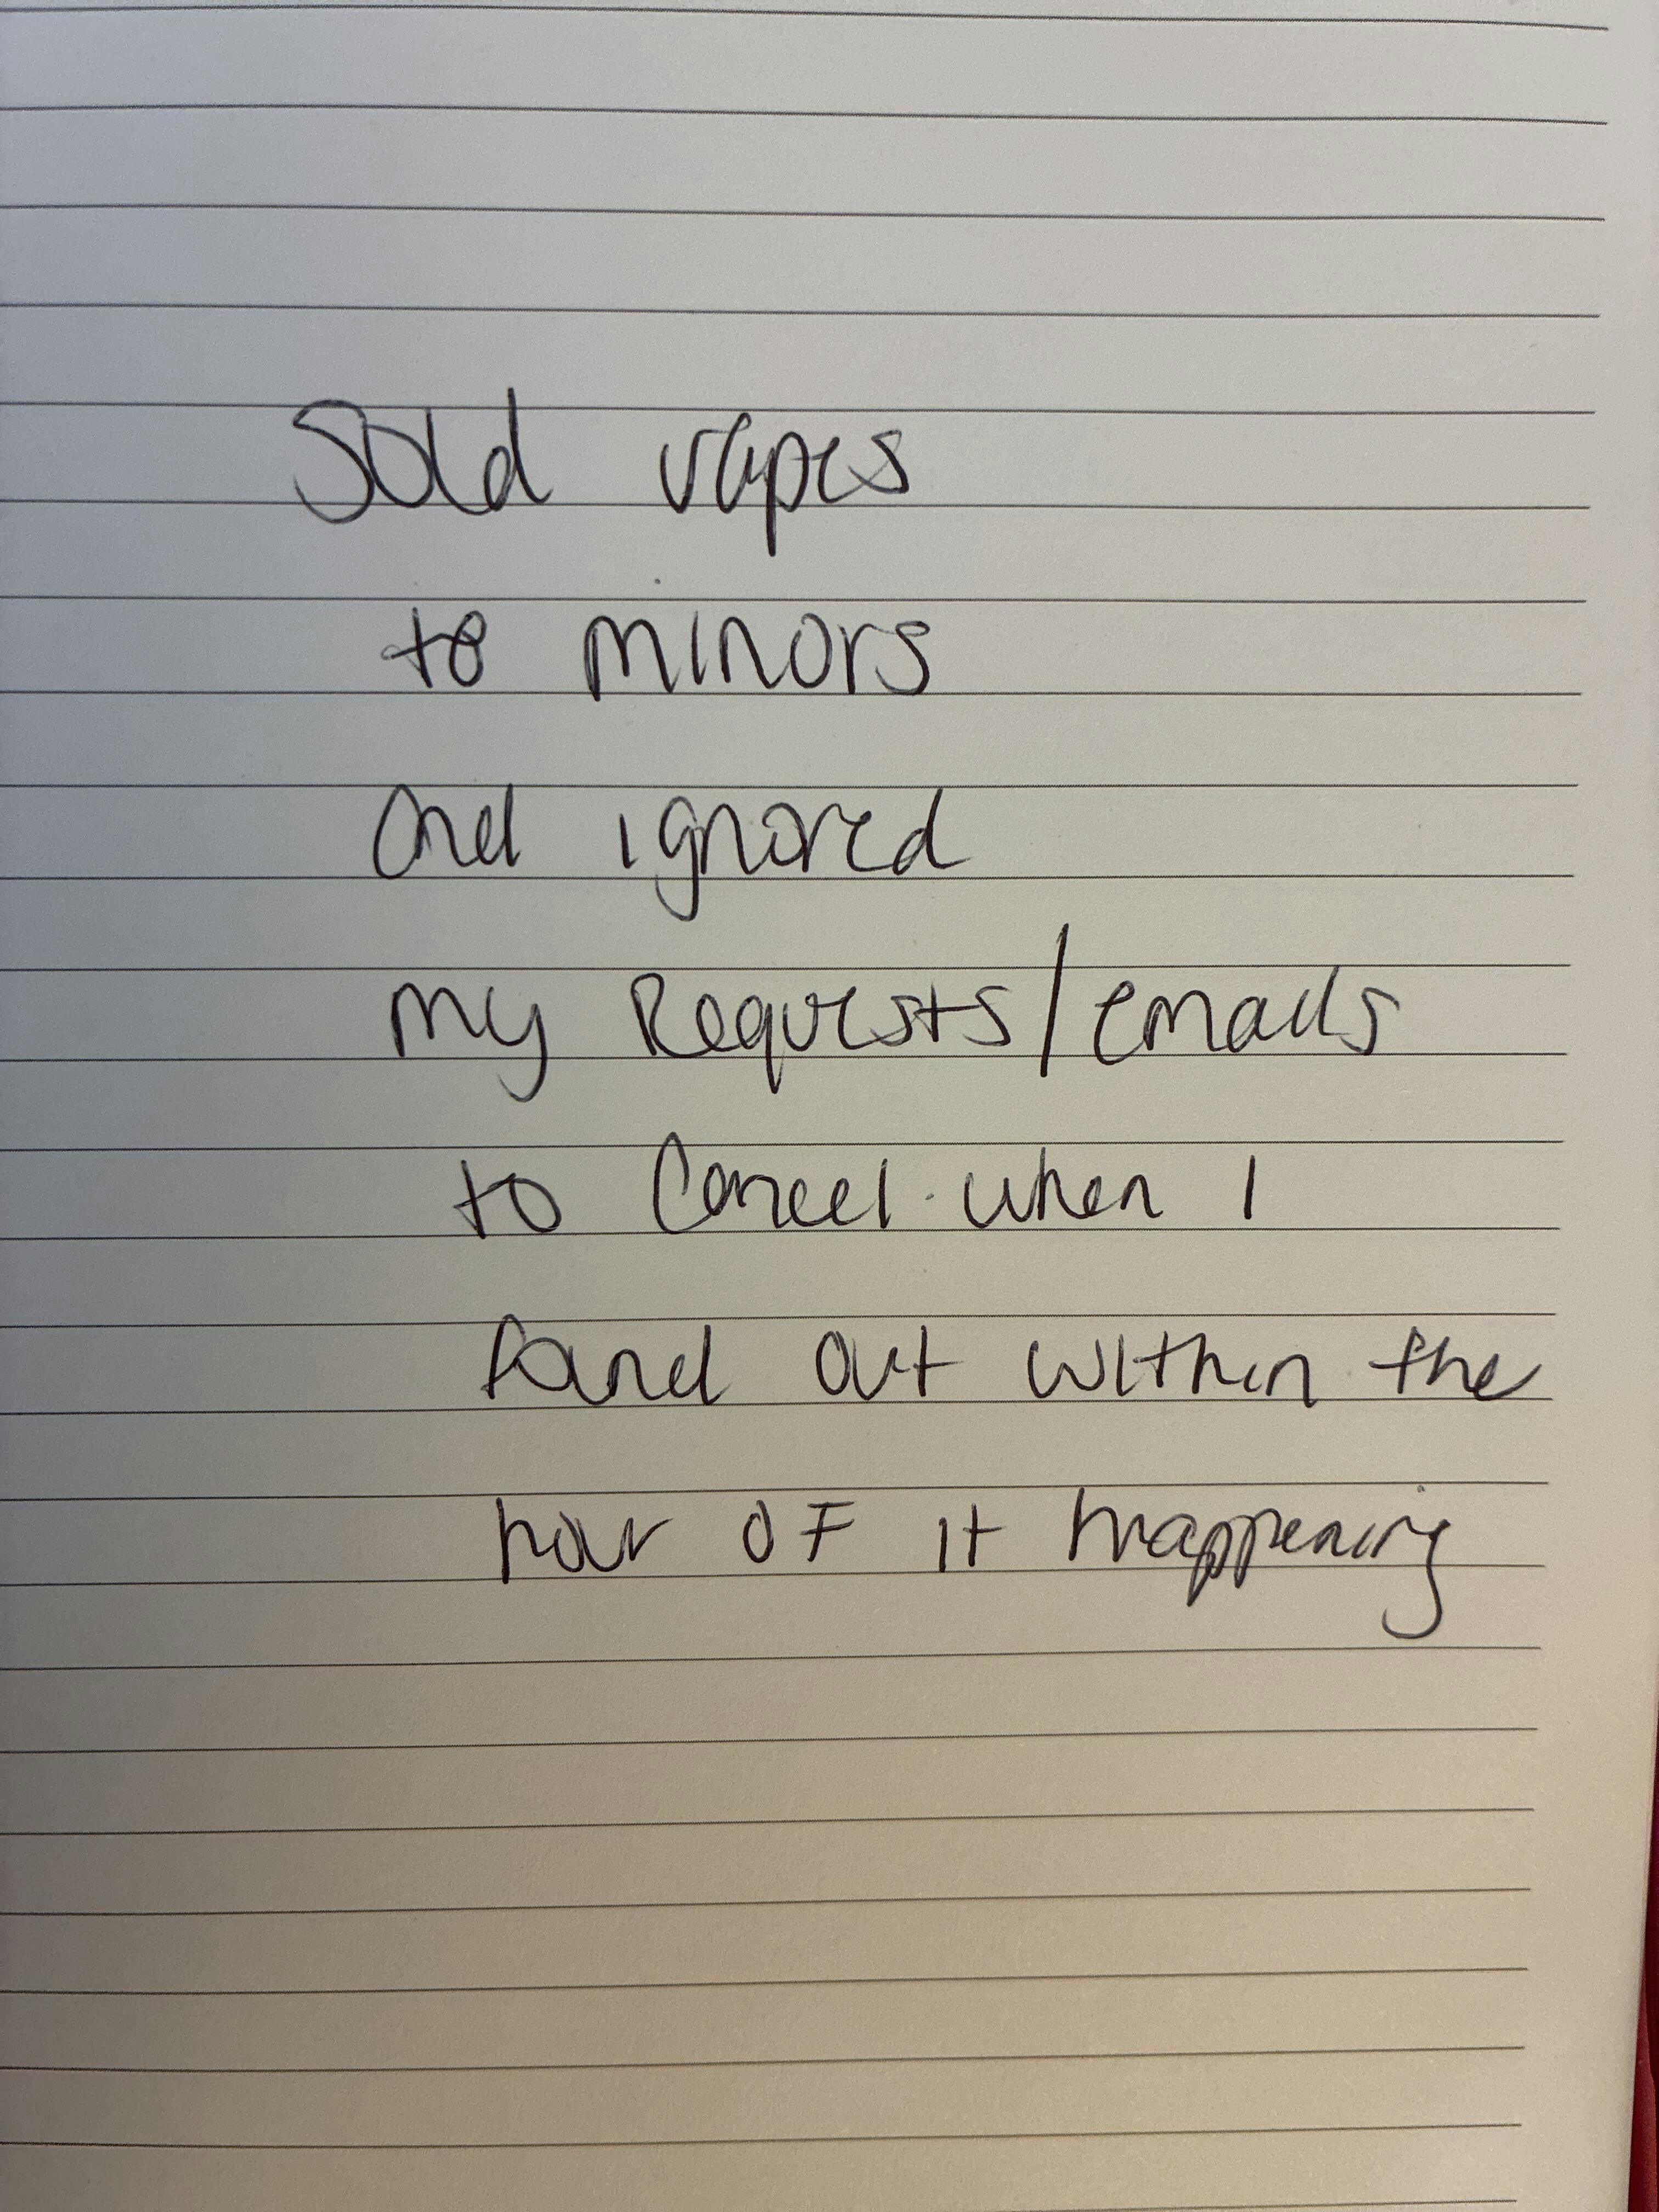 Sold vapes
to minors
and ignored
my Requests/emails
to Cancel. when I
found out within the
hour OF it happening